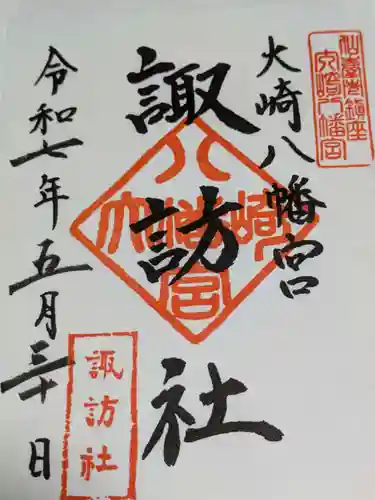 仙臺總鎮座
大崎八幡宮
大崎八幡宮
諏訪社
八幡宮
大崎
令和七年五月三十日
諏訪社